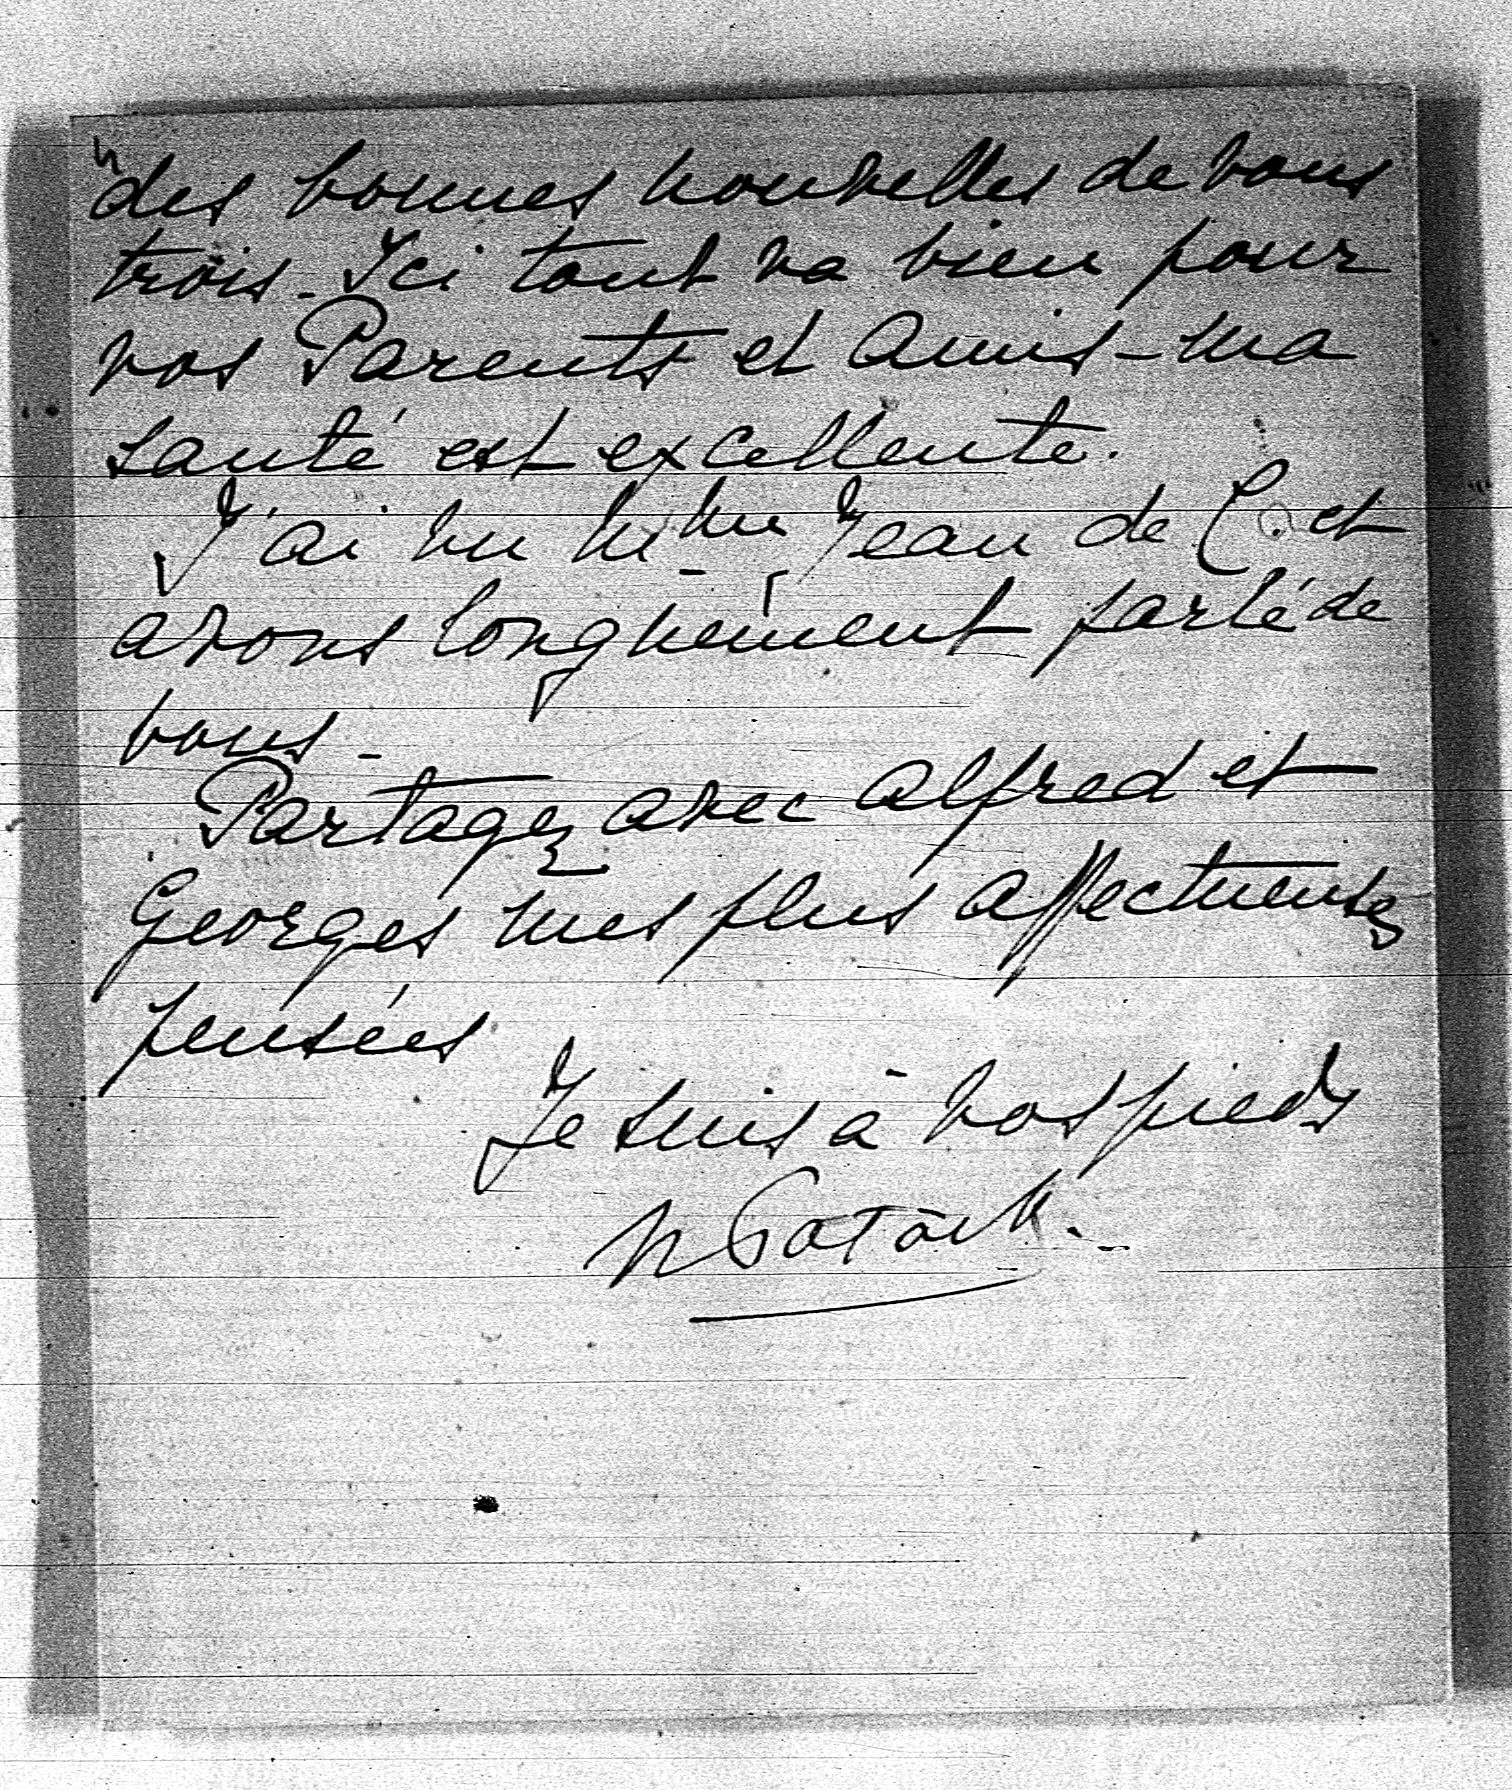 des bonnes nouvelles de vous
trois - Ici tout va bien pour
vos Parents et Amis - ma
santé est excellente.
J'ai vu Mme Jean de C. et
avons longuement parlé de
vous -
Partagez avec Alfred et
Georges mes plus affectueuses
pensées
Je suis à vos pieds